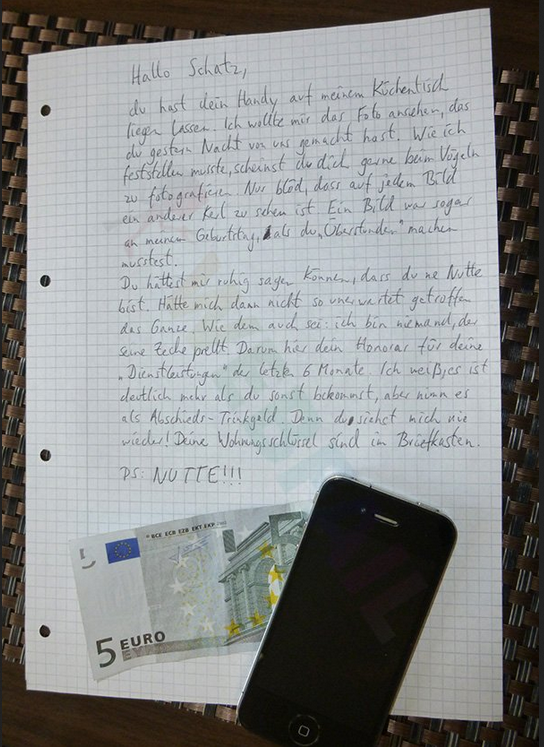 Hallo Schatz,
du hast dein Handy auf meinem Küchentisch
liegen lassen. Ich wollte mir das Foto ansehen, das
du gestern Nacht von uns gemacht hast. Wie ich
feststellen musste, scheinst du dich gerne beim Vögeln
zu fotografieren. Nur blöd, dass auf jedem Bild
ein anderer Kerl zu sehen ist. Ein Bild war sogar
an meinem Geburtstag, als du „Überstunden" machen
musstest.
Du hättest mir ruhig sagen können, dass du ne Nutte
bist. Hätte mich dann nicht so unerwartet getroffen
das Ganze. Wie dem auch sei: ich bin niemand, der
seine Zeche prellt. Darum hier dein Honorar für deine
„Dienstleistungen" der letzten 6 Monate. Ich weiß, es ist
deutlich mehr als du sonst bekommst, aber nimm es
als Abschieds-Trinkgeld. Denn du siehst mich nie
wieder! Deine Wohnungsschlüssel sind im Briefkasten.
PS: NUTTE!!!
BCE ECB EZB EKT EKP
5 EURO